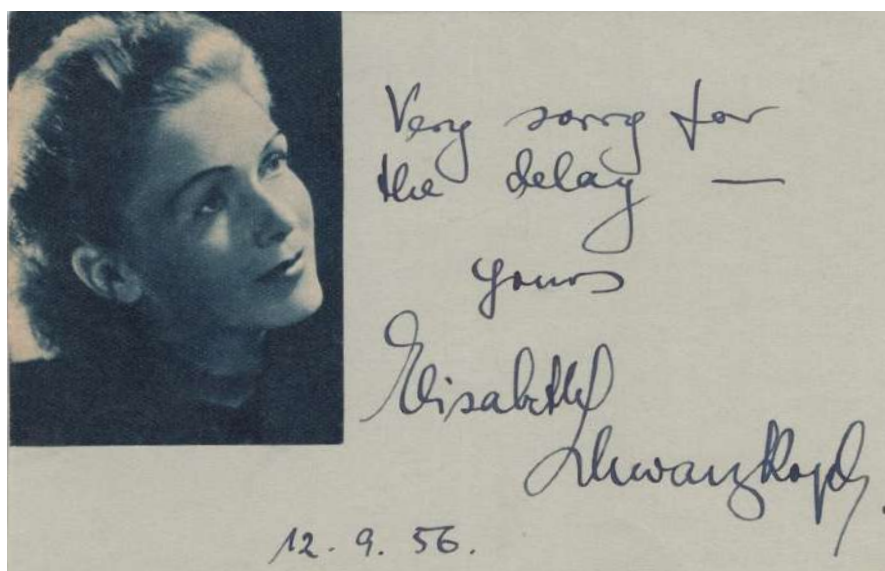 Very sorry for
the delay —
yours
Elisabeth
Schwarzkopf.
12. 9. 56.